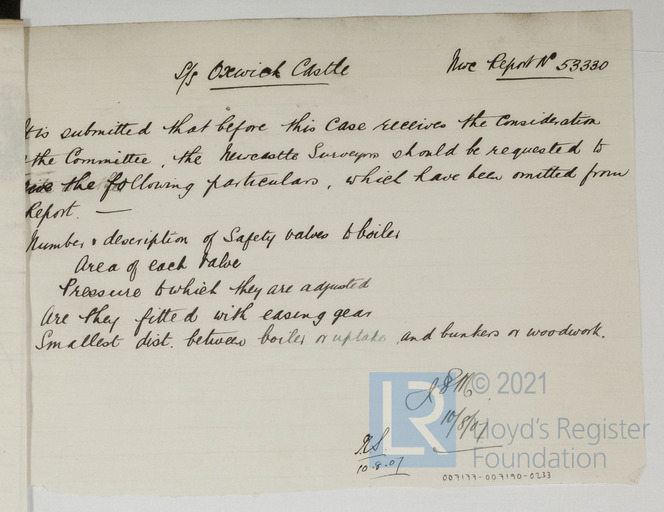 S/S Oxwich Castle Nwc Report No 53330
It is submitted that before this Case receives the Consideration
the Committee, the Newcastle Surveyors should be requested to
the following particulars, which have been omitted from
Report. —
Number & description of Safety valves to boiler
Area of each Valve
Pressure to which they are adjusted
Are they fitted with easing gear
Smallest dist. between boiler or uptake and bunkers or woodwork.
10/8/07
10.8.07
LR © 2021
Lloyd's Register
Foundation
007177-007190-0233